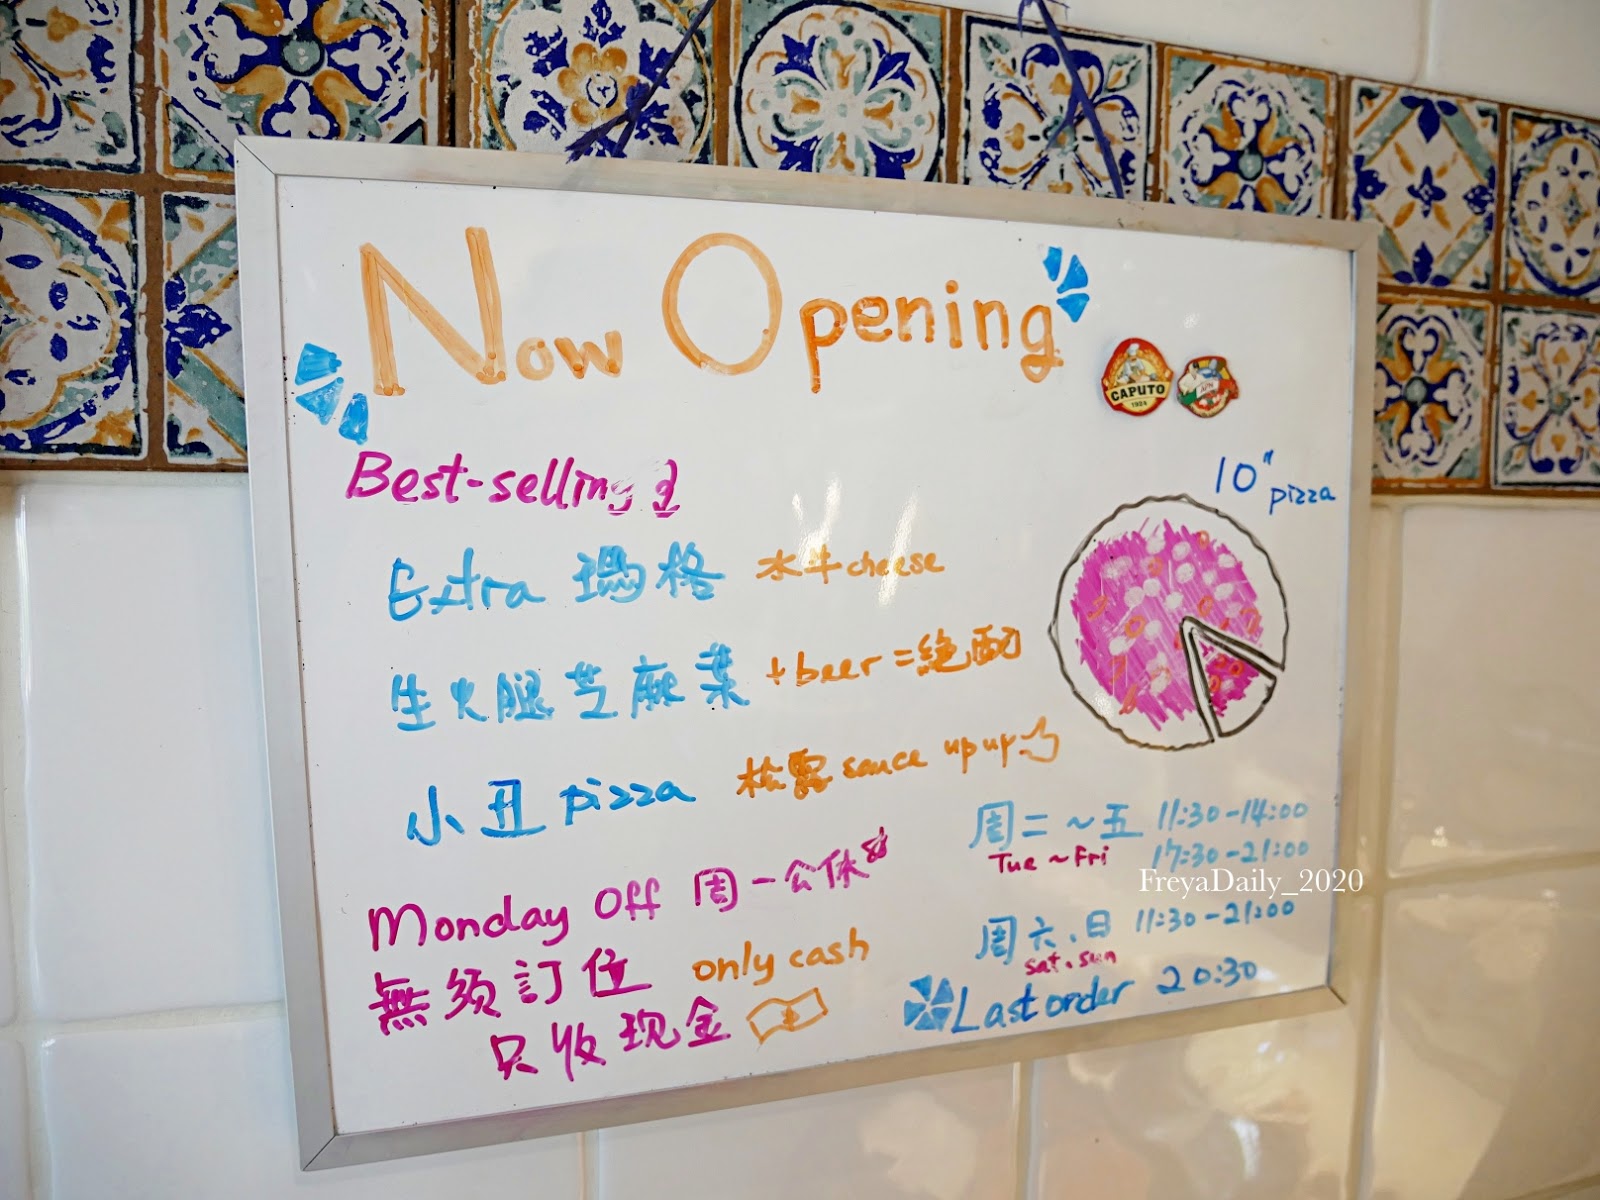 Now Opening
CAPUTO
1924
10" pizza
Best-selling
Extra 瑪格 水牛cheese
生火腿芝麻葉 + beer = 絕配
小丑 pizza 松露 sauce up up
周二~五 11:30-14:00
Tue ~ Fri 17:30-21:00
FreyaDaily_2020
Monday off 周一公休
周六、日 11:30-21:00
sat. sun
無須訂位 only cash
Last order 20:30
只收现金